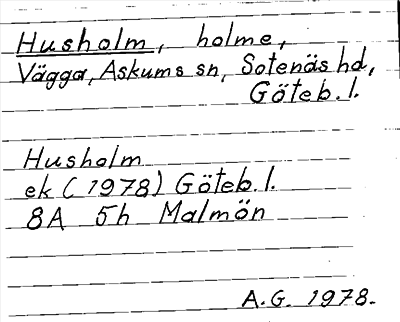 Husholm, holme,
Vägga, Askums sn, Sotenäs hd,
Göteb. l.
Husholm
ek (1978) Göteb. l.
8A 5h Malmön
A.G. 1978.